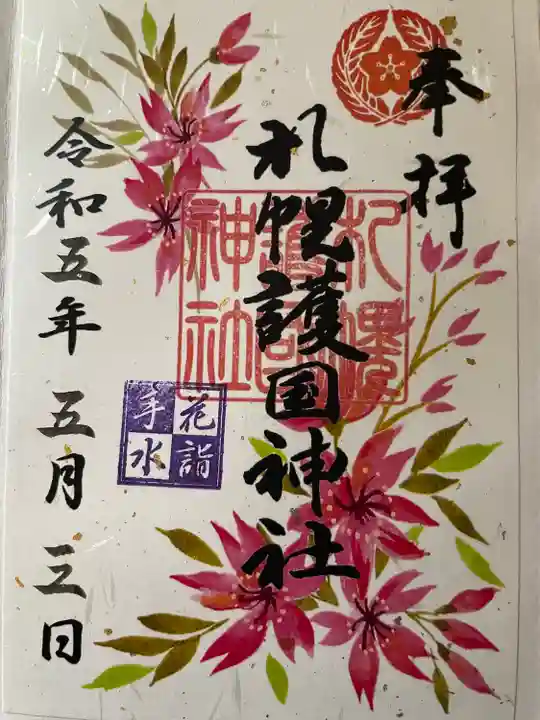 奉拝
札幌護国神社
札幌護国神社
花詣
手水
令和五年 五月 三日